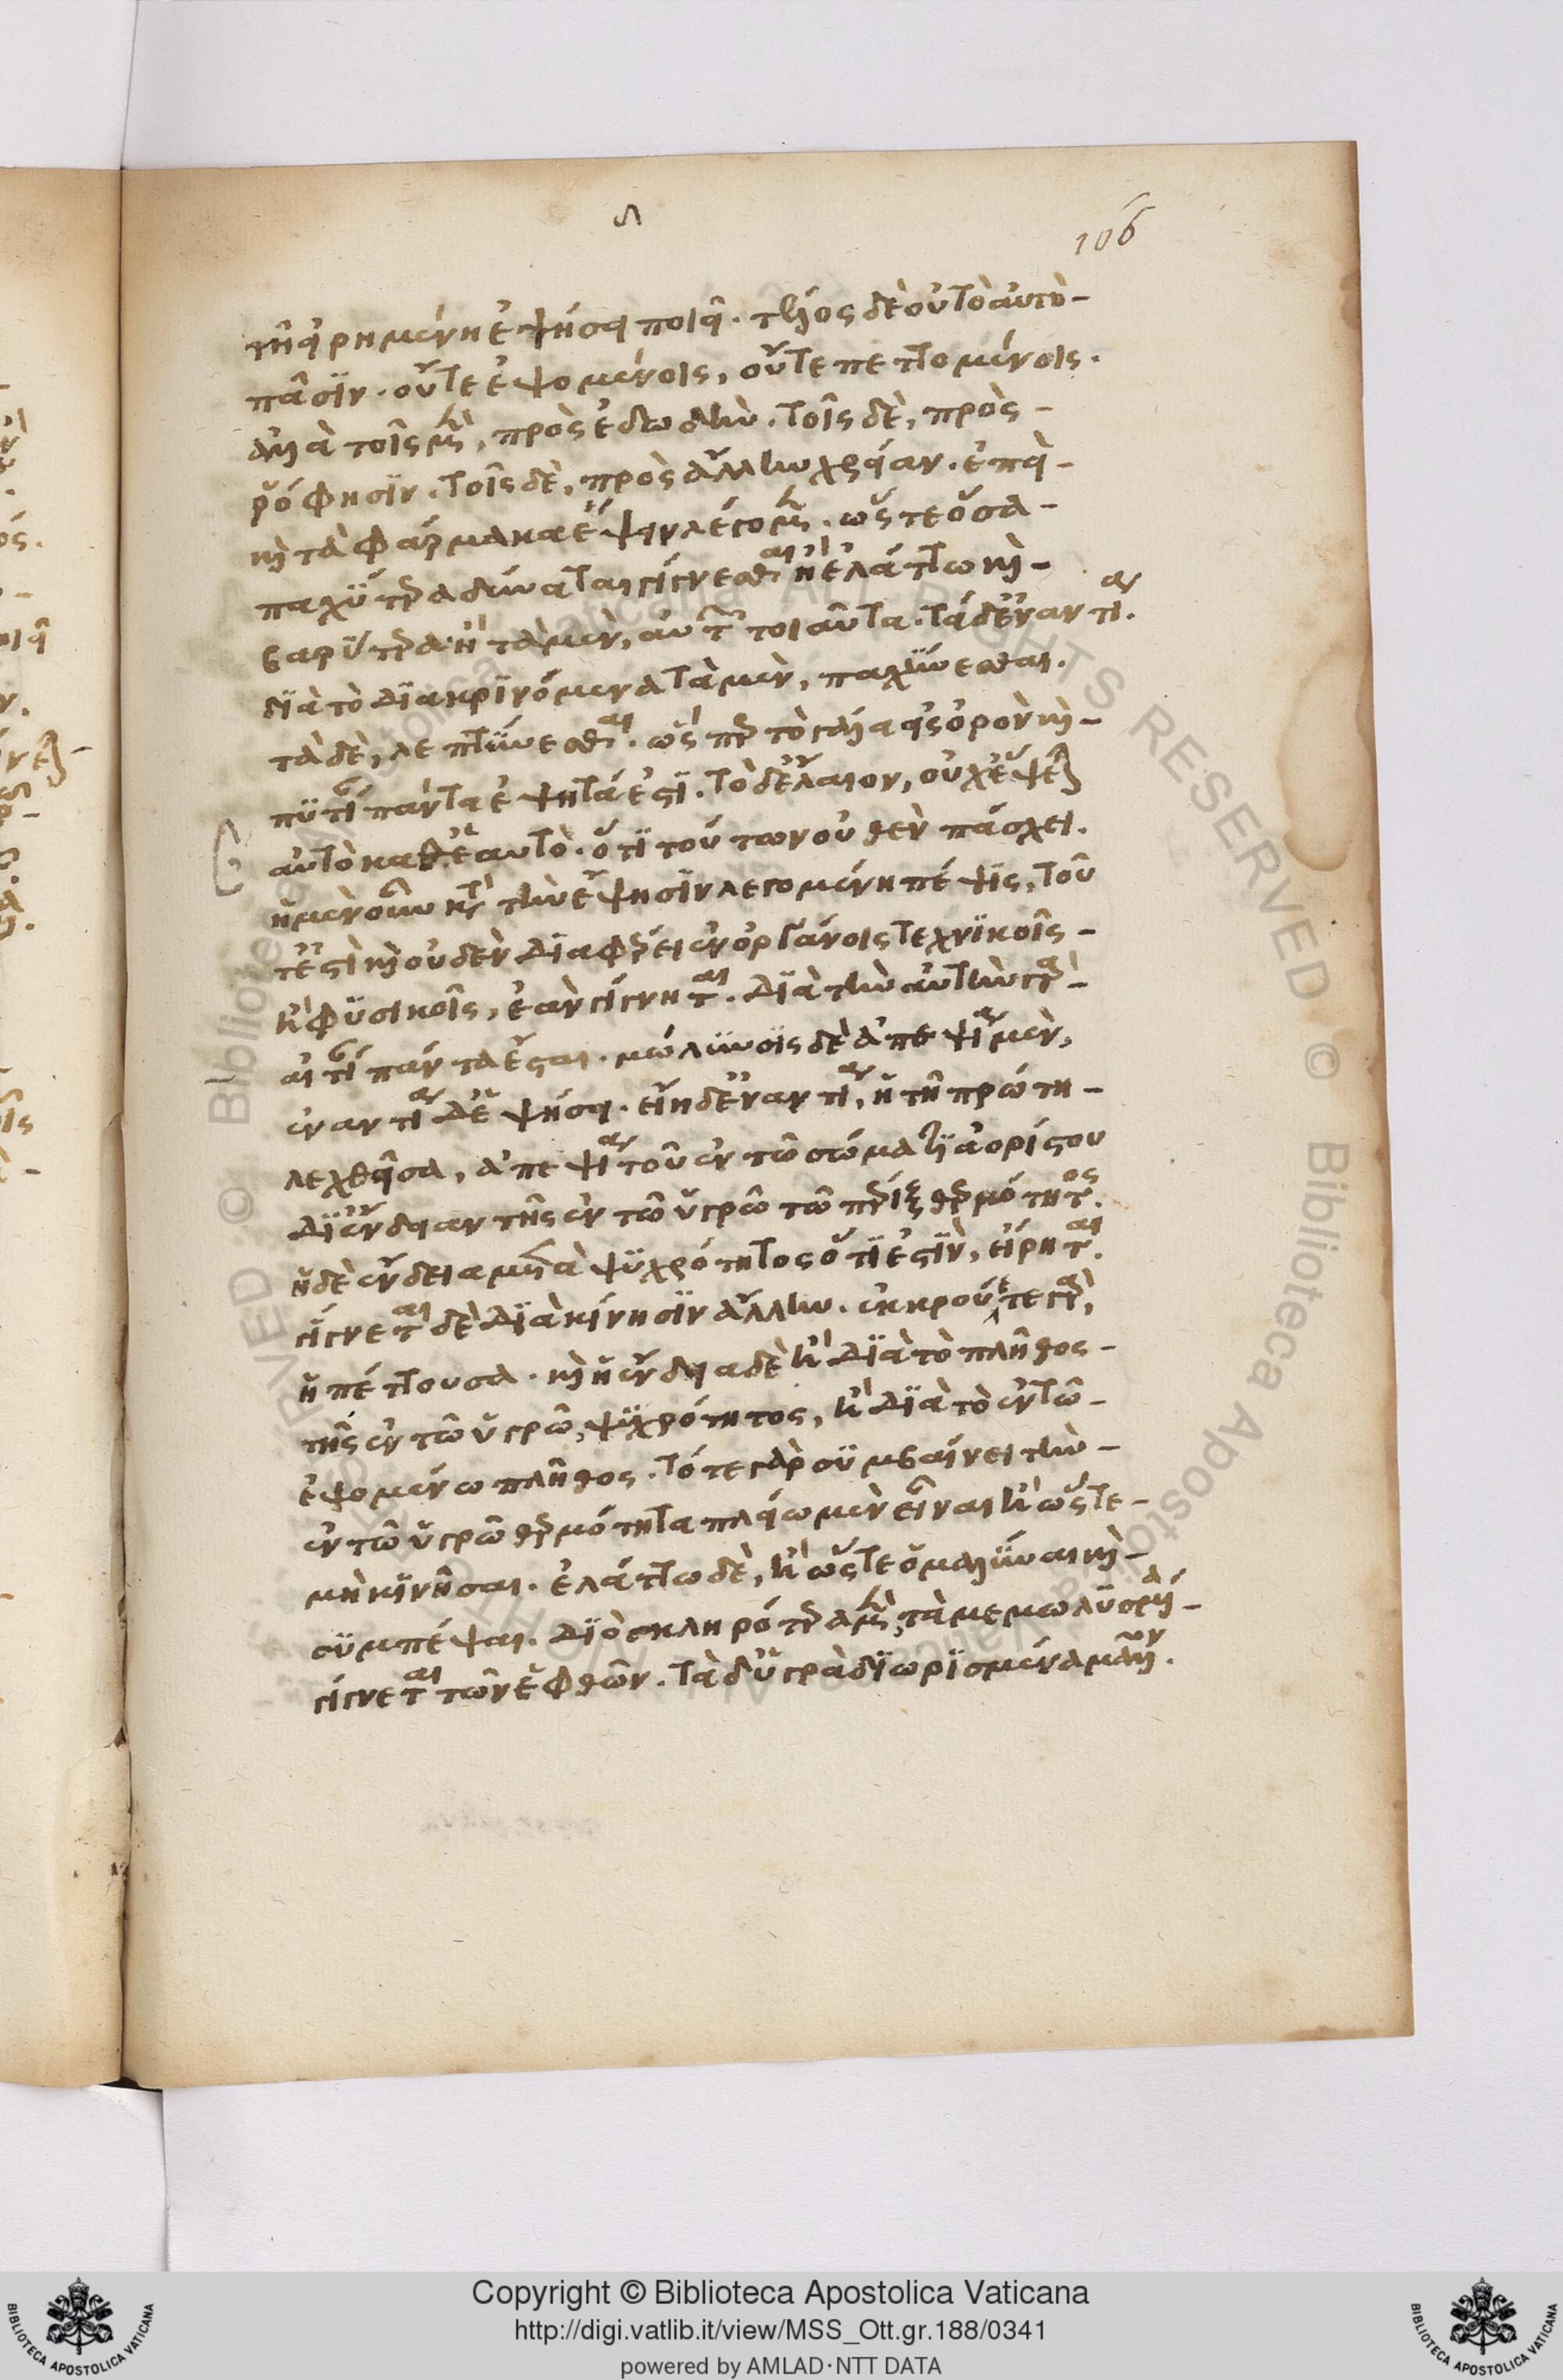 δ
106
τῆ εἰρημένη ἑψήσει ποιεῖ. τέλος δὲ οὐ τὸ αὐτὸ
πᾶσιν. οὔτε ἑψομένοις, οὔτε πεττομένοις.
ἀλλὰ τοῖς μὲν, πρὸς ἐδωδήν. τοῖς δὲ, πρὸς
ῥόφησιν. τοῖς δὲ, πρὸς ἄλλην χρείαν. ἐπεὶ
καὶ τὰ φάρμακα ἕψειν λέγομεν. ὥστε ὅσα
παχύτερα δύναται γίγνεσθαι ἢ ἐλάττω καὶ
βαρύτερα ἢ τὰ μὲν, αὐτῶν τοιαῦτα. τὰ δ' ἐναντία.
διὰ τὸ διακρινόμενα τὰ μὲν, παχύνεσθαι.
τὰ δὲ, λεπτύνεσθαι. ὥσπερ τὸ γάλα εἰς ὀρὸν καὶ
πυτίαν πάντα ἑψητά ἐστι. τὸ δ' ἔλαιον, οὐχ ἕψεται
αὐτὸ καθ' ἑαυτὸ. ὅτι τούτων οὐθὲν πάσχει.
ἡ μὲν οὖν κατὰ τὴν ἕψησιν λεγομένη πέψις, τοῦτ'
ἐστὶ καὶ οὐδὲν διαφέρει ἐν ὀργάνοις τεχνικοῖς
καὶ φυσικοῖς, ἐὰν γίγνηται. διὰ τὴν αὐτὴν γὰρ
αἰτίαν πάντα ἔσται. μώλυνσις δὲ ἀπεψία μὲν,
ἐναντία δ' ἑψήσει. εἴη δ' ἐναντία, ἡ τῆ πρώτη
λεχθεῖσα, ἀπεψία τοῦ ἐν τῶ σώματι ἀορίστου
δι' ἔνδειαν τῆς ἐν τῶ ὑγρῶ τῶ πέριξ θερμότητος.
ἡ δὲ ἔνδεια μετὰ ψυχρότητος ὅτι ἐστὶν, εἴρηται.
γίγνεται δὲ διὰ κίνησιν ἄλλην. ἐκκρούεται γὰρ,
ἡ πέττουσα. καὶ ἡ ἔνδεια δὲ ἢ διὰ τὸ πλῆθος
τῆς ἐν τῶ ὑγρῶ, ψυχρότητος, ἢ διὰ τὸ ἐν τῶ
ἑψομένω πλῆθος. τότε γὰρ συμβαίνει τὴν
ἐν τῶ ὑγρῶ θερμότητα πλείω μὲν εἶναι ἢ ὥστε
μὴ κινῆσαι. ἐλάττω δὲ, ἢ ὥστε ὁμαλῦναι καὶ
συμπέψαι. διὸ σκληρότερα μὲν, τὰ μεμωλυσμένα
γίγνεται τῶν ἑφθῶν. τὰ δ' ὑγρὰ διωρισμένα μᾶλλον.
Copyright © Biblioteca Apostolica Vaticana
http://digi.vatlib.it/view/MSS_Ott.gr.188/0341
powered by AMLAD·NTT DATA
BIBLIOTECA APOSTOLICA VATICANA
BIBLIOTECA APOSTOLICA VATICANA